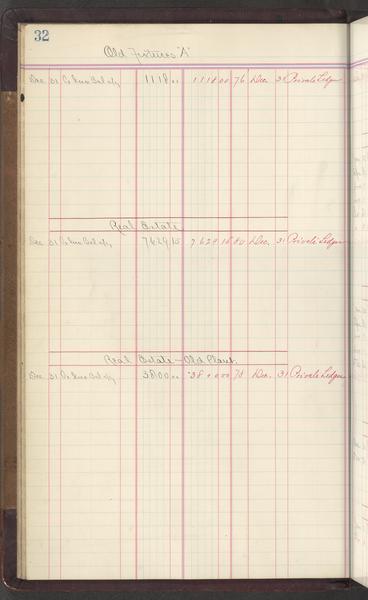 32
Old Fixtures "A"
Dec 31 Bal 1118.00 1118 00 76 Dec. 31 Private Ledger
Real Estate
Dec 31 Bal 7629.15 7629 15 80 Dec. 31 Private Ledger
Real Estate – Old Plant
Dec 31 Bal 3800.00 3800 00 78 Dec. 31 Private Ledger